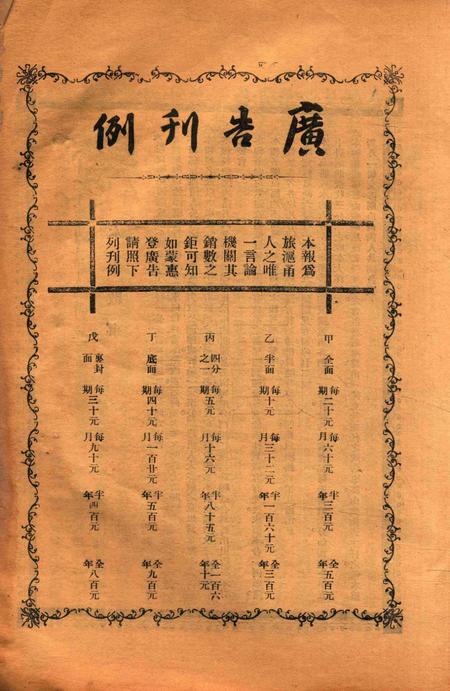 廣告刊例
本報爲
旅滬甬
人之唯
一言論
機關其
銷數之
鉅可知
如蒙惠
登廣告
請照下
列刊例
甲 全面 每期二十元 每月六十元 半年三百元 全年五百元
乙 半面 每期十元 每月三十二元 半年一百六十元 全年三百元
丙 四分之一 每期五元 每月十六元 半年八十五元 全年一百六十元
丁 底面 每期四十元 每月一百廿元 半年五百元 全年九百元
戊 裏封面 每期三十元 每月九十元 半年四百元 全年八百元